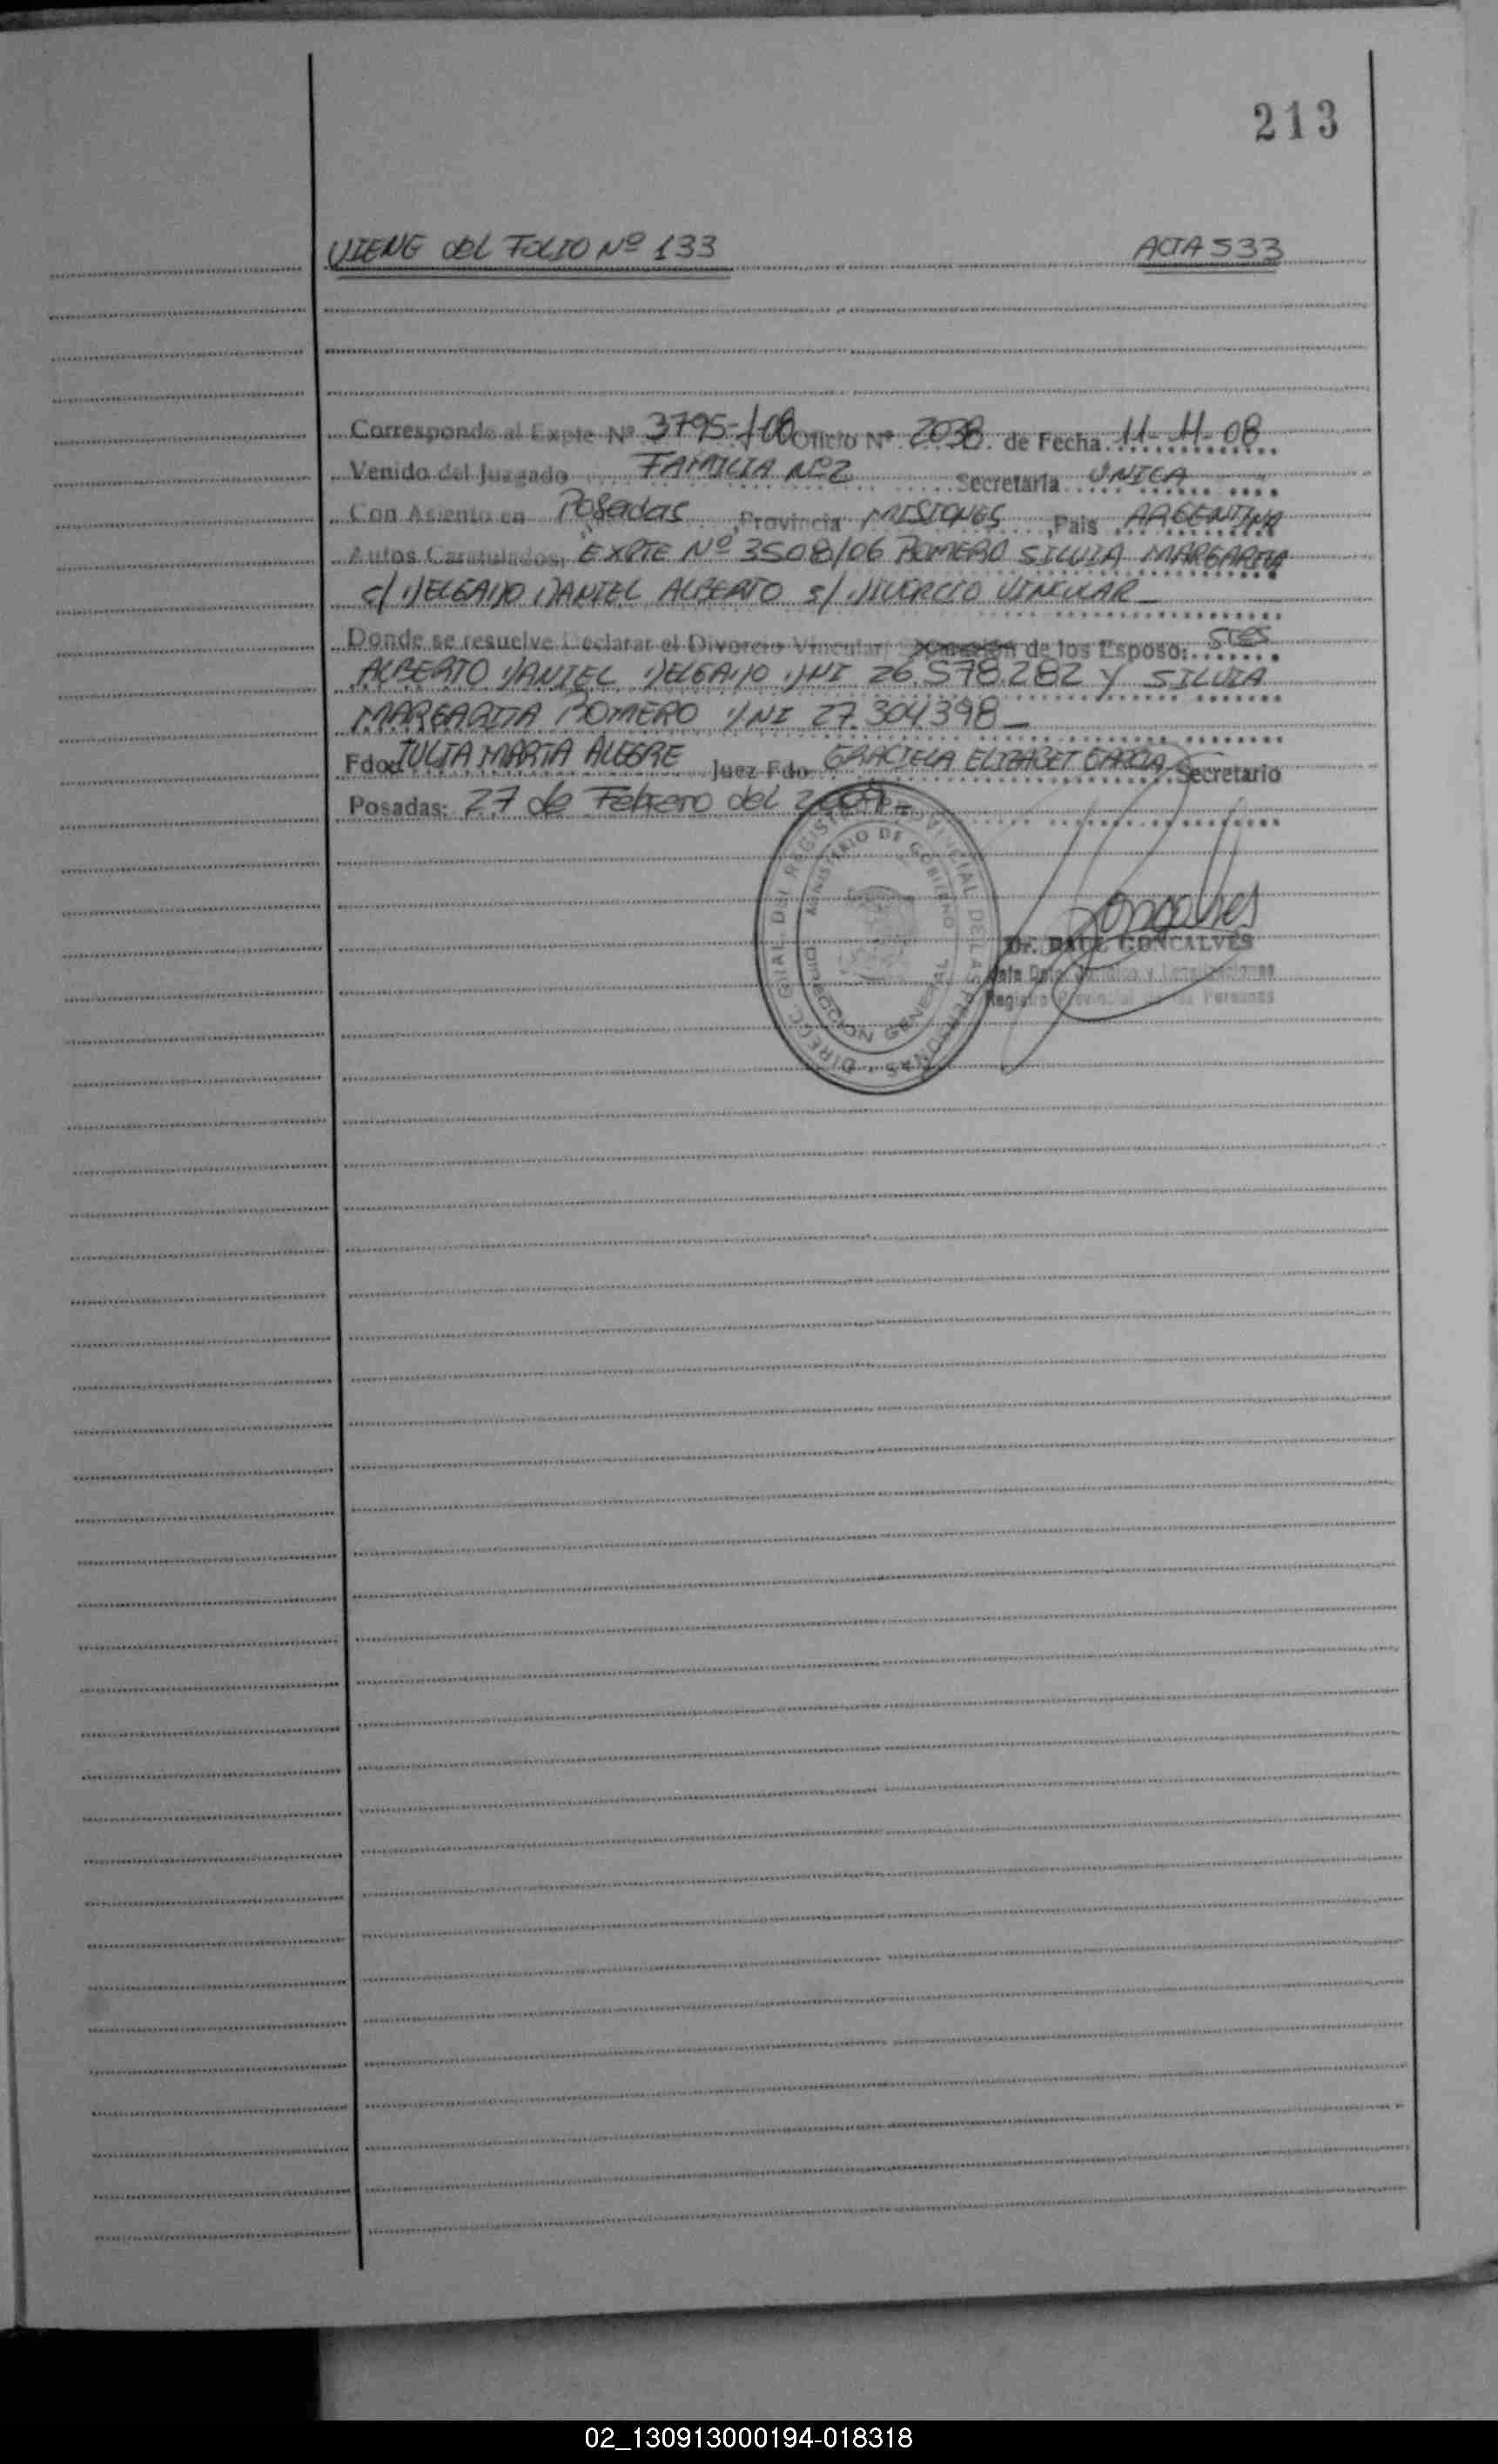 213
VIENE DEL FOLIO Nº 133 ACTA 533
Corresponde al Expte Nº 3795-J-08 Oficio Nº 2038 de Fecha 11-11-08
Venido del Juzgado FAMILIA Nº 2 Secretaria UNICA
Con Asiento en Posadas, Provincia MISIONES, Pais ARGENTINA
Autos Caratulados, EXPTE Nº 3508/06 ROMERO SILVIA MARGARITA
c/ DELGADO DANIEL ALBERTO s/ DIVORCIO VINCULAR
Donde se resuelve Declarar el Divorcio Vincular de los Esposo:
ALBERTO DANIEL DELGADO DNI 26.578.282 Y SILVIA
MARGARITA ROMERO DNI 27.304.398
Fdo: JULIA MARTA ALEGRE Juez Fdo GRACIELA ELIZABET GARCIA Secretario
Posadas: 27 de Febrero del 2009
DIRECC. GRAL. DEL REGISTRO PROVINCIAL DE LAS PERSONAS
MINISTERIO DE GOBIERNO
DIRECCION GENERAL
Goncalves
Dr. RAUL GONCALVES
Jefe Dpto. Jurídico y Legalizaciones
Registro Provincial de las Personas
02_130913000194-018318